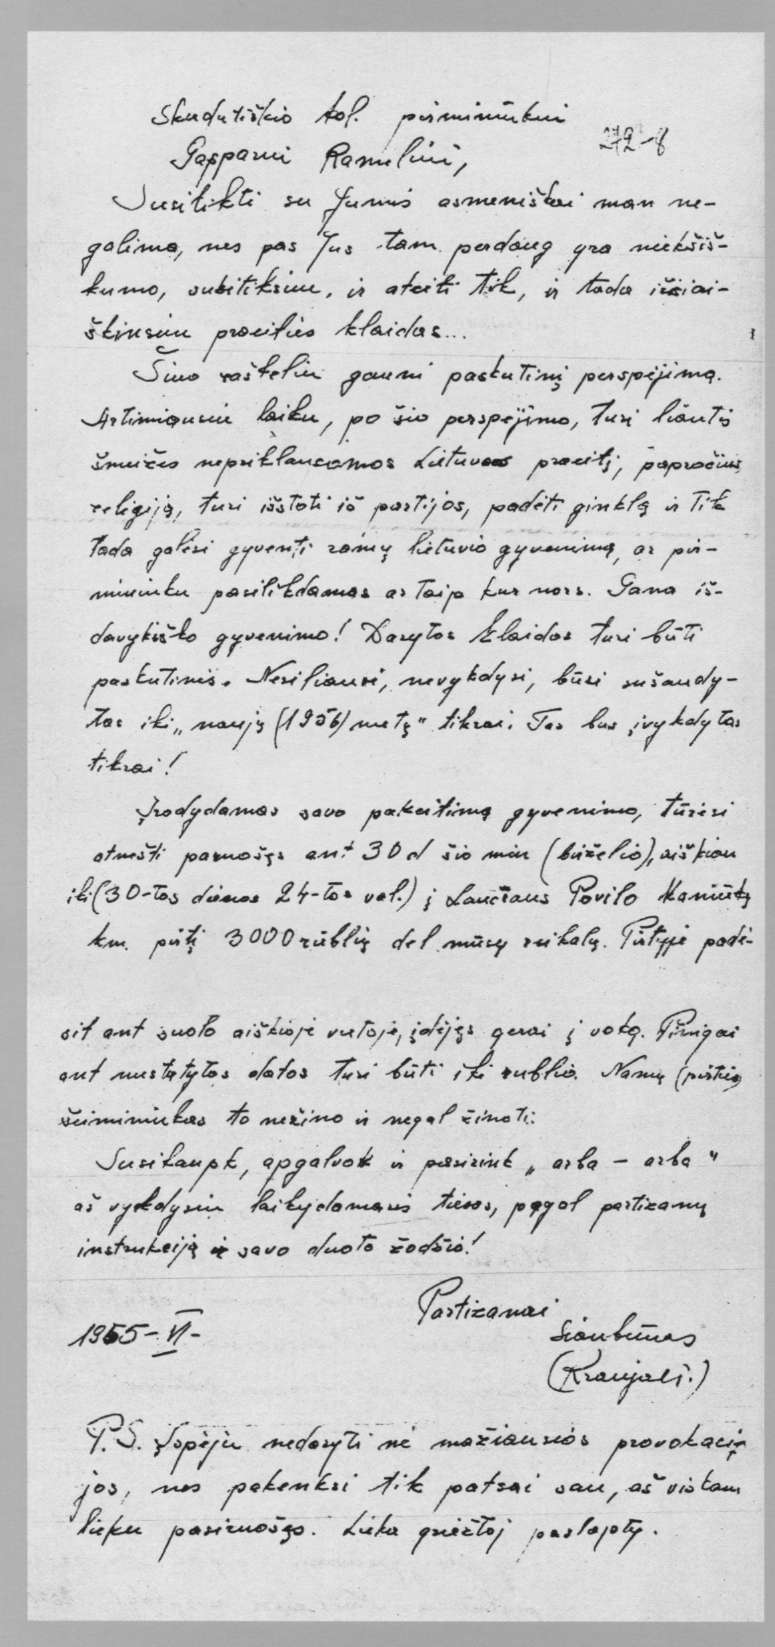 Skudutiškio kol. pirmininkui
272-8
Gasparui Rameliui,
Susitikti su Jumis asmeniškai man ne-
galima, nes pas Jus tam perdaug yra niekšiš-
kumo, susitiksim, ir ateiti tik, ir tada išsiai-
škinsim praeities klaidas...
Šiuo rašteliu gauni paskutinį perspėjimą.
Artimiausiu laiku, po šio perspėjimo, turi liautis
šmeižęs nepriklausomos Lietuvos praeitį, papročius
religiją, turi išstoti iš partijos, padėti ginklą ir tik
tada galėsi gyventi ramų lietuvio gyvenimą, ar pir-
mininku pasilikdamas ar taip kur nors. Gana iš-
davykiško gyvenimo! Darytos klaidos turi būti
paskutinis. Nesiliausi, nevykdysi, būsi sušaudy-
tas iki „naujų (1956) metų" tikrai. Tas bus įvykdytas
tikrai!
Įrodydamas savo pakeitimą gyvenimo, tūrėsi
atnešti paruošęs ant 30 d šio mėn (birželio), aiškiau
iki (30-tos dienos 24-tos val.) į Laučiaus Povilo
km. pirtį 3000 rūblių del mūsų reikalų. Pirtyje padė-
sit ant suolo aiškioje vietoje, įdėjęs gerai į voką. Pinigai
ant nustatytos datos turi būti iki rublio. Namų (pirties)
šeimininkas to nežino ir negal žinoti.
Susikaupk, apgalvok ir pasirink „arba – arba"
aš vykdysiu laikydamasis tiesos, pagal partizanų
instrukciją ir savo duoto žodžio!
Partizanai
1955-VI-
Siaubūnas
(Kraujal.)
P.S. Įspėju nedaryti nė mažiausios provokaci-
jos, nes pakenksi tik patsai sau, aš vistam
lieku pasiruošęs. Lieka griežtoj paslapty.